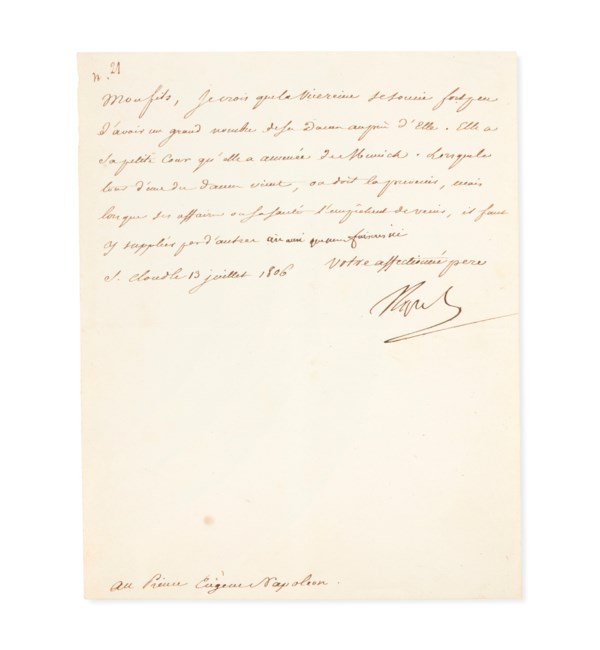 N. 21
Mon fils, Je crois que la Vicereine se soucie fort peu
d'avoir un grand nombre de ses Dames auprès d'Elle. Elle a
sa petite Cour qu'elle a amenée de Munich. Lorsque le
tour d'une du dames vient, on doit la prevenir, mais
lorsque ses affaires ou sa santé l'empêchent de venir, il faut
y suppléer par d'autres ainsi que nous faisons ici
S. Cloud le 13 juillet 1806 Votre affectionné pere
Au Prince Eugène Napoleon.